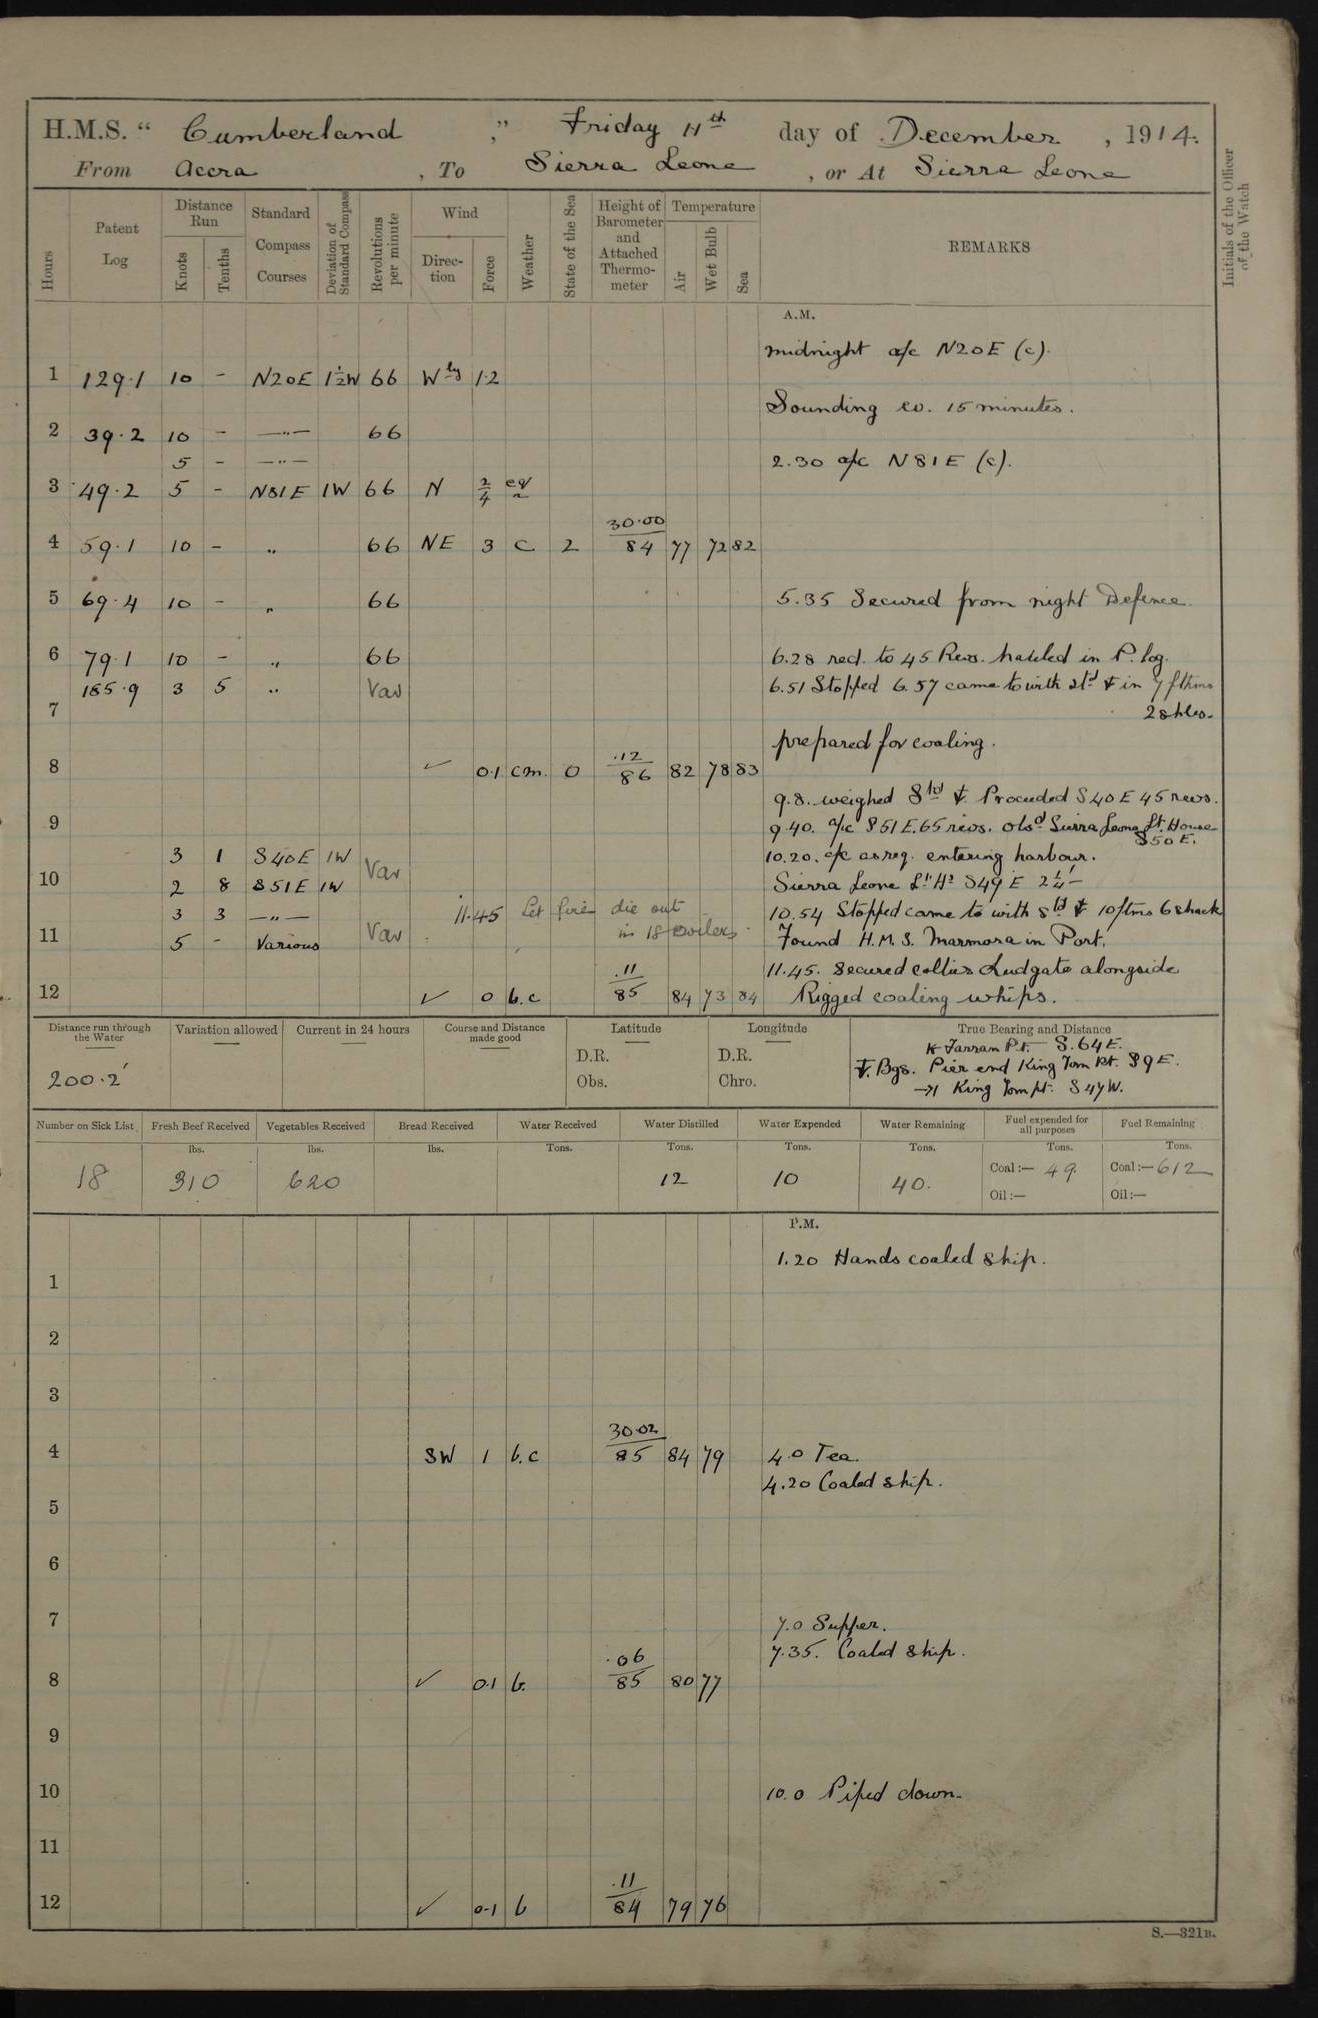 H.M.S. “ Cumberland ,” Friday 11th day of December , 1914.
From Accra , To Sierra Leone , or At Sierra Leone
Hours
Patent Log
Distance Run
Knots
Tenths
Standard Compass Courses
Deviation of Standard Compass
Revolutions per minute
Wind
Direction
Force
Weather
State of the Sea
Height of Barometer and Attached Thermometer
Temperature
Air
Wet Bulb
Sea
REMARKS
Initials of the Officer of the Watch
A.M.
midnight a/c N20E (c).
1 129.1 10 - N20E 1½W 66 Wly 1.2
Sounding ev. 15 minutes.
2 39.2 10 - —"— 66
5 - —"—
2.30 a/c N81E (c).
3 49.2 5 - N81E 1W 66 N 2/4 cq
30.00
4 59.1 10 - " 66 NE 3 c 2 84 77 72 82
5 69.4 10 - " 66 5.35 Secured from night Defence.
6 79.1 10 - " 66 6.28 red. to 45 Revs. hauled in P. log.
185.9 3 5 " Var 6.51 Stopped 6.57 came to with Std ⚓ in 7 fthms
7 2 shles.
prepared for coaling.
.12
8 ✓ 0.1 cm. 0 86 82 78 83
9.8. weighed Stbd ⚓. Proceeded S40E 45 revs.
9 9.40. a/c S51E. 65 revs. obsd Sierra Leone Lt. House
S50E.
3 1 S40E 1W Var 10.20. c/c as req. entering harbour.
10 2 8 S51E 1W Sierra Leone Lt Hs S49E 2¼'
3 3 —"— 11.45 Let fires die out 10.54 Stopped came to with Stbd ⚓ 10 ftms 6 shack
11 5 - Various Var in 18 Boilers. Found H.M.S. Marmora in Port.
.11
11.45. Secured collier Ludgate alongside
12 ✓ 0 b.c 85 84 73 84 Rigged coaling whips.
Distance run through the Water
Variation allowed
Current in 24 hours
Course and Distance made good
Latitude
Longitude
True Bearing and Distance
D.R.
D.R.
Obs.
Chro.
200.2'
Farran Pt. S.64E.
⚓. Bgs. Pier end King Tom Pt. S9E.
King Tom pt. S47W.
Number on Sick List
Fresh Beef Received
Vegetables Received
Bread Received
Water Received
Water Distilled
Water Expended
Water Remaining
Fuel expended for all purposes
Fuel Remaining
lbs. lbs. lbs. Tons. Tons. Tons. Tons. Tons. Tons.
18 310 620 12 10 40. Coal:— 49 Coal:— 612
Oil:— Oil:—
P.M.
1.20 Hands coaled ship.
1
2
3
30.02
4 SW 1 b.c 85 84 79 4.0 Tea.
4.20 Coaled ship.
5
6
7 7.0 Supper.
7.35. Coaled ship.
.06
8 ✓ 0.1 b. 85 80 77
9
10 10.0 Piped down.
11
.11
12 ✓ 0.1 b 84 79 76
S.—321B.